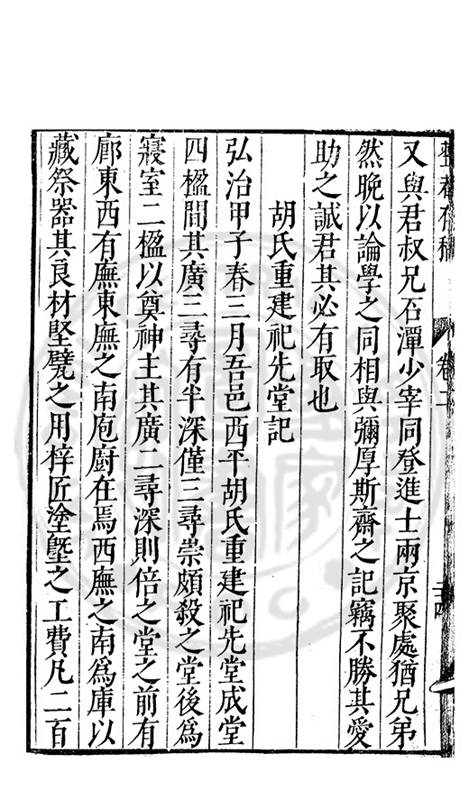 又與君叔兄石潭少宰同登進士兩京聚處猶兄弟
然晚以論學之同相與彌厚斯齋之記竊不勝其愛
助之誠君其必有取也
胡氏重建祀先堂記
弘治甲子春三月吾邑西平胡氏重建祀先堂成堂
四楹間其廣三尋有半深僅三尋崇頗殺之堂後為
寢室二楹以奠神主其廣二尋深則倍之堂之前有
廊東西有廡東廡之南庖廚在焉西廡之南為庫以
藏祭器其良材堅甓之用梓匠塗塈之工費凡二百
卷二